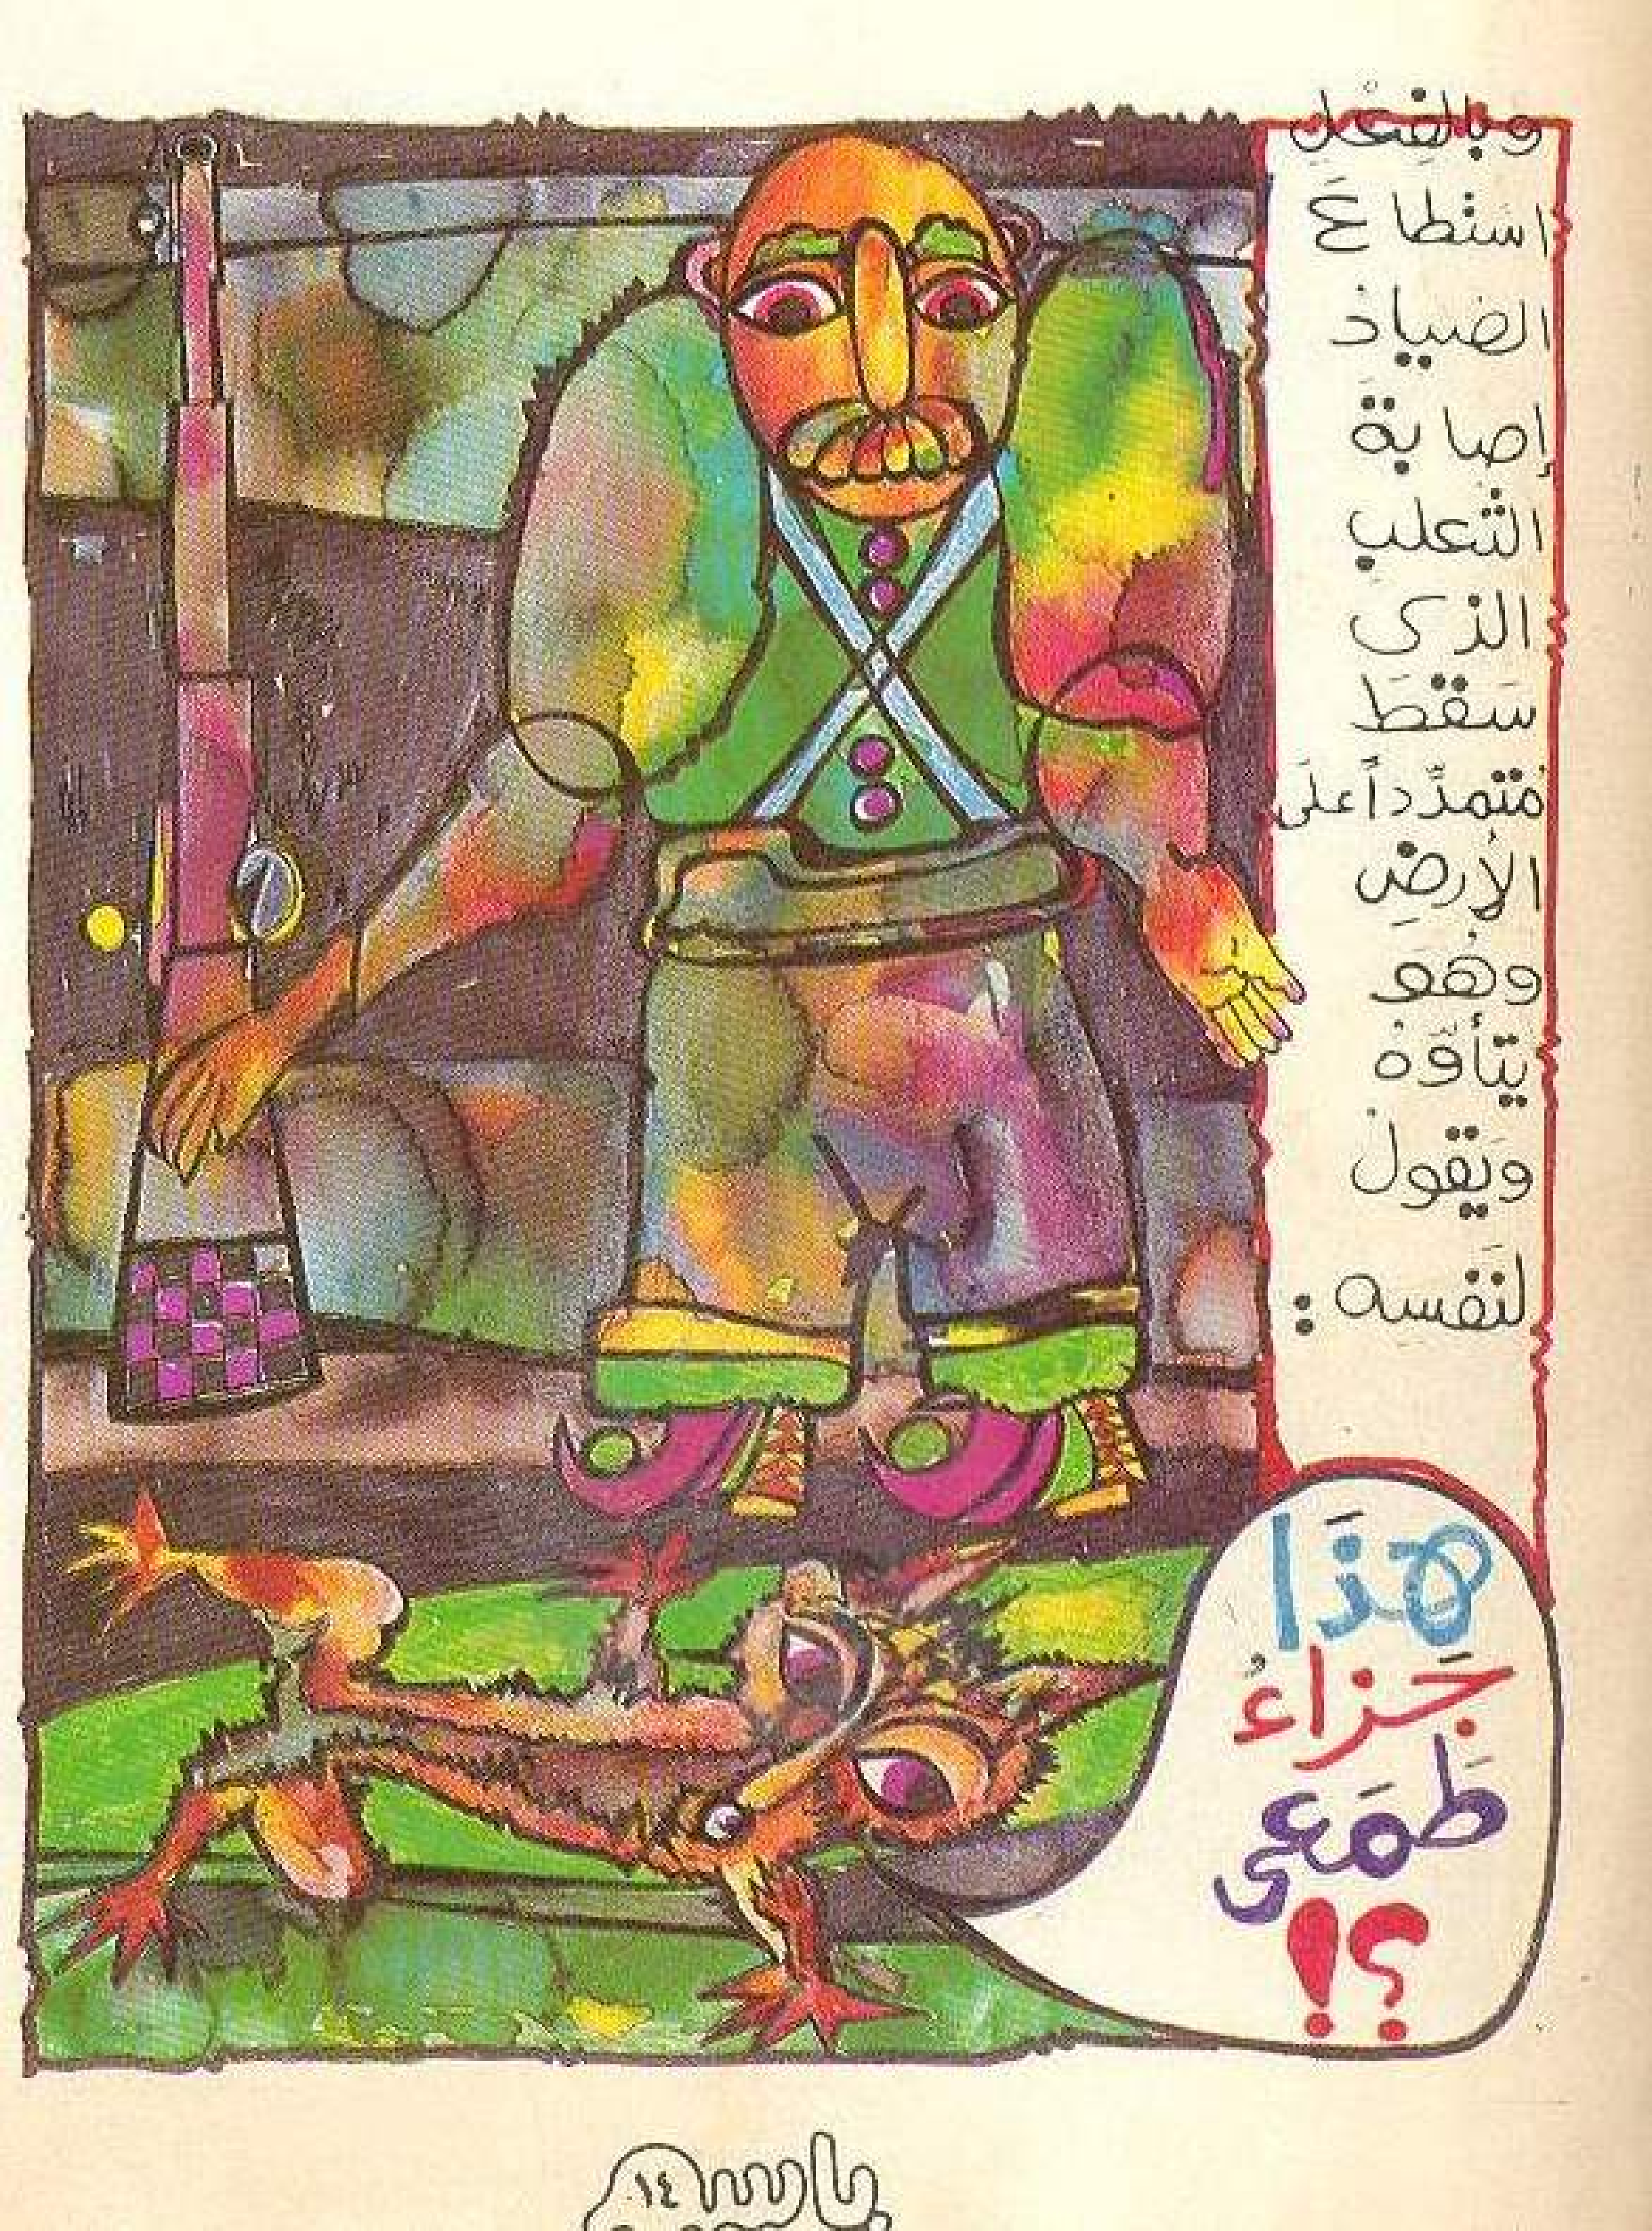 وبالفعل
استطاعَ
الصياد
إصابة
الثعلب
الذى
سَقطَ
مُتمدِّداً علَى
الأرضِ
وهُو
يتأوَّه
ويَقول
لنَفسه :
هذَا
جَزاءُ
طَمَعى
؟!
باسم
١٤